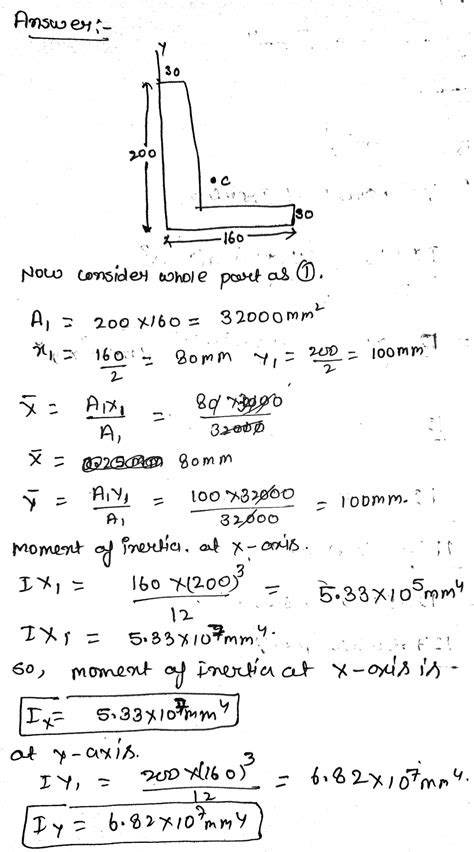 Answer:-
Y
30
200
C
30
160
Now consider whole part as ①.
A₁ = 200 x160 = 32000mm²
x₁ = 160/2 = 80mm Y₁ = 200/2 = 100mm
X̄ = A₁X₁/A₁ = 80 x32000/32000
X̄ = 80mm
Ȳ = A₁Y₁/A₁ = 100 x32000/32000 = 100mm.
moment of inertia. at x-axis.
IX₁ = 160 x(200)³/12 = 5.33x10⁵mm⁴
IX₁ = 5.33x10⁷mm⁴.
so, moment of inertia at x-axis is -
Ix = 5.33x10⁷mm⁴
at y-axis.
IY₁ = 200 x(160)³/12 = 6.82x10⁷mm⁴.
Iy = 6.82x10⁷mm4